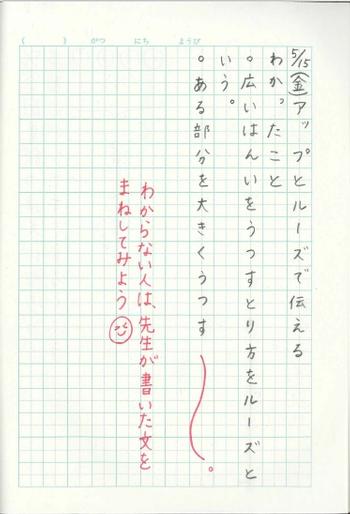 ( ) がつ にち ようび
5/15(金)アップとルーズで伝える
わかったこと
○広いはんいをうつすとり方をルーズと
いう。
○ある部分を大きくうつす 。
わからない人は、先生が書いた文を
まねしてみよう